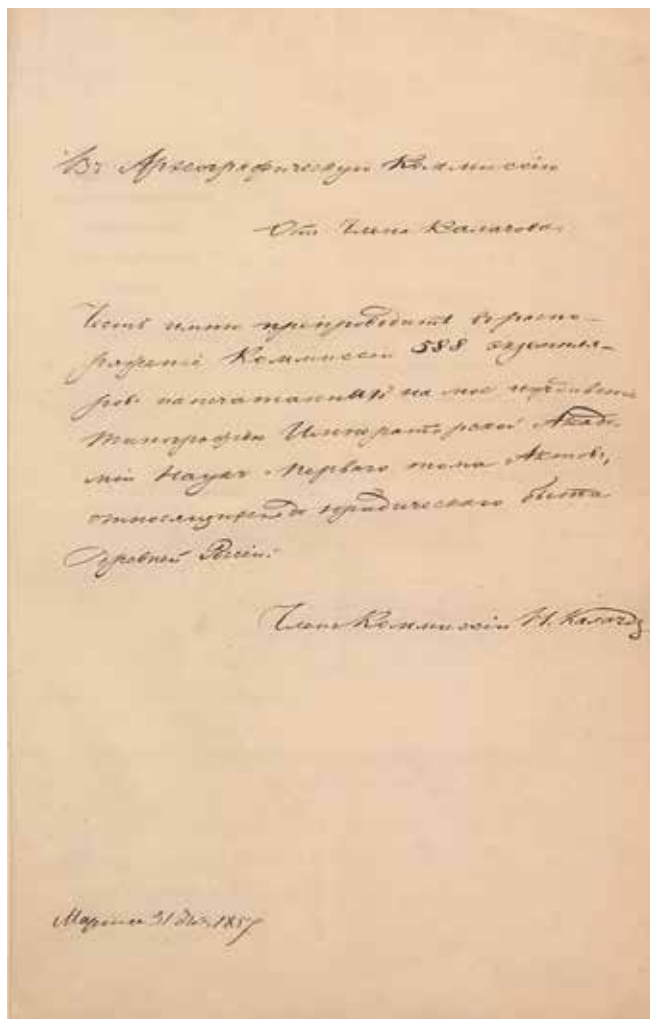 Въ Археографическую Коммиссію
Отъ Члена Калачова.
Честь имѣю препроводить въ распо-
ряженіе Коммиссіи 588 экземпля-
ровъ напечатанныхъ на мое иждивеніе
Типографіею Императорской Акаде-
міи Наукъ Перваго тома Актовъ,
относящихся до юридическаго быта
древней Россіи.
Членъ Коммиссіи Н. Калачов
Марта 31 дня 1857